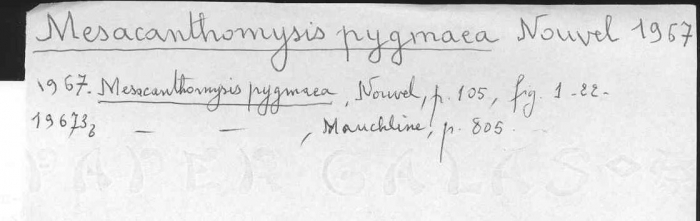 Mesacanthomysis pygmaea Nouvel 1967
1967. Mesacanthomysis pygmaea, Nouvel, p. 105, fig. 1-22-
— — , Mauchline, p. 805.
PAPER GALASOS